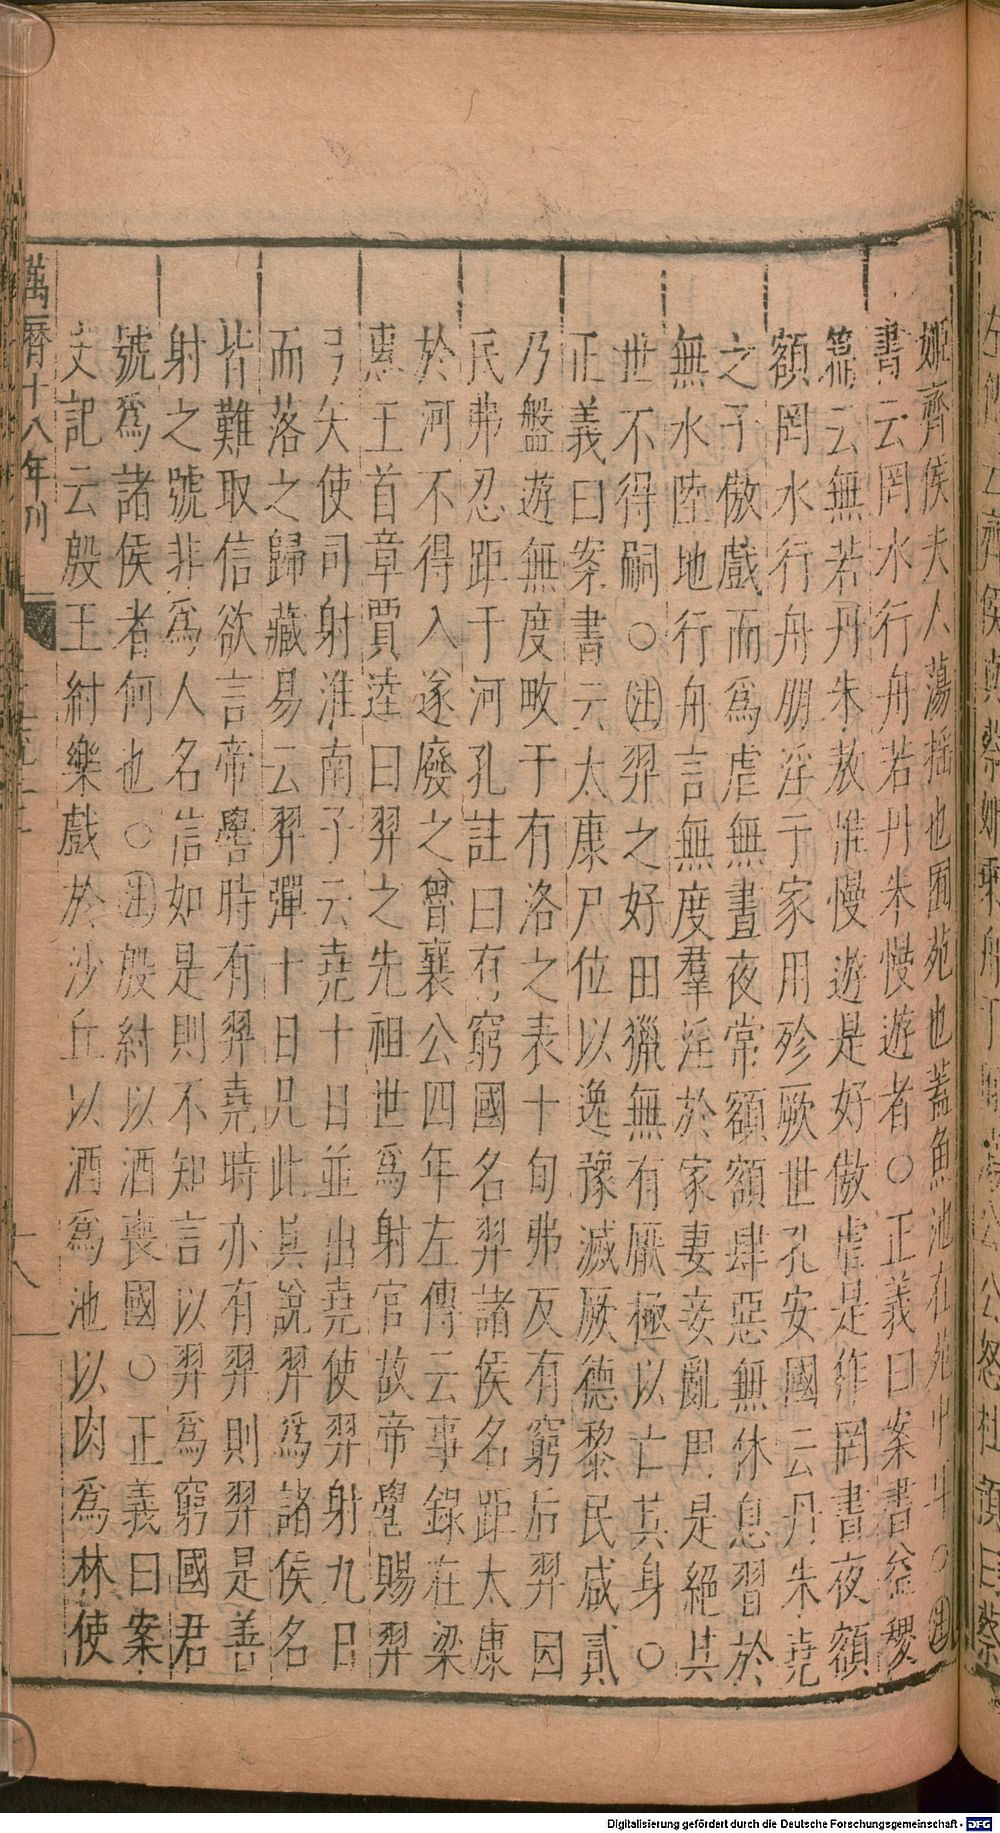 姬齊侯夫人蕩揺也囿苑也蓋魚池在苑中耳○注
書云罔水行舟若丹朱慢遊者○正義曰案書益稷
篇云無若丹朱敖惟慢遊是好傲虐是作罔晝夜額
額罔水行舟朋淫于家用殄厥世孔安國云丹朱堯
之子傲戲而為虐無晝夜常額額肆惡無休息習於
無水陸地行舟言無度羣淫於家妻妾亂用是絕其
世不得嗣○注羿之好田獵無有厭極以亡其身○
正義曰案書云太康尸位以逸豫滅厥德黎民咸貳
乃盤遊無度畋于有洛之表十旬弗反有窮后羿因
民弗忍距于河孔註曰有窮國名羿諸侯名距太康
於河不得入遂廢之魯襄公四年左傳云事錄在梁
惠王首章賈逵曰羿之先祖世爲射官故帝嚳賜羿
弓矢使司射淮南子云堯十日並出堯使羿射九日
而落之歸藏易云羿彈十日凡此其說羿爲諸侯名
皆難取信欲言帝嚳時有羿堯時亦有羿則羿是善
射之號非爲人名信如是則不知言以羿爲窮國君
號爲諸侯者何也○注殷紂以酒喪國○正義曰案
史記云殷王紂樂戲於沙丘以酒爲池以肉爲林使
萬曆十八年刊
十八
左傳云齊侯與蔡姬乘舟于 公公怒杜預曰蔡
Digitalisierung gefördert durch die Deutsche Forschungsgemeinschaft - DFG